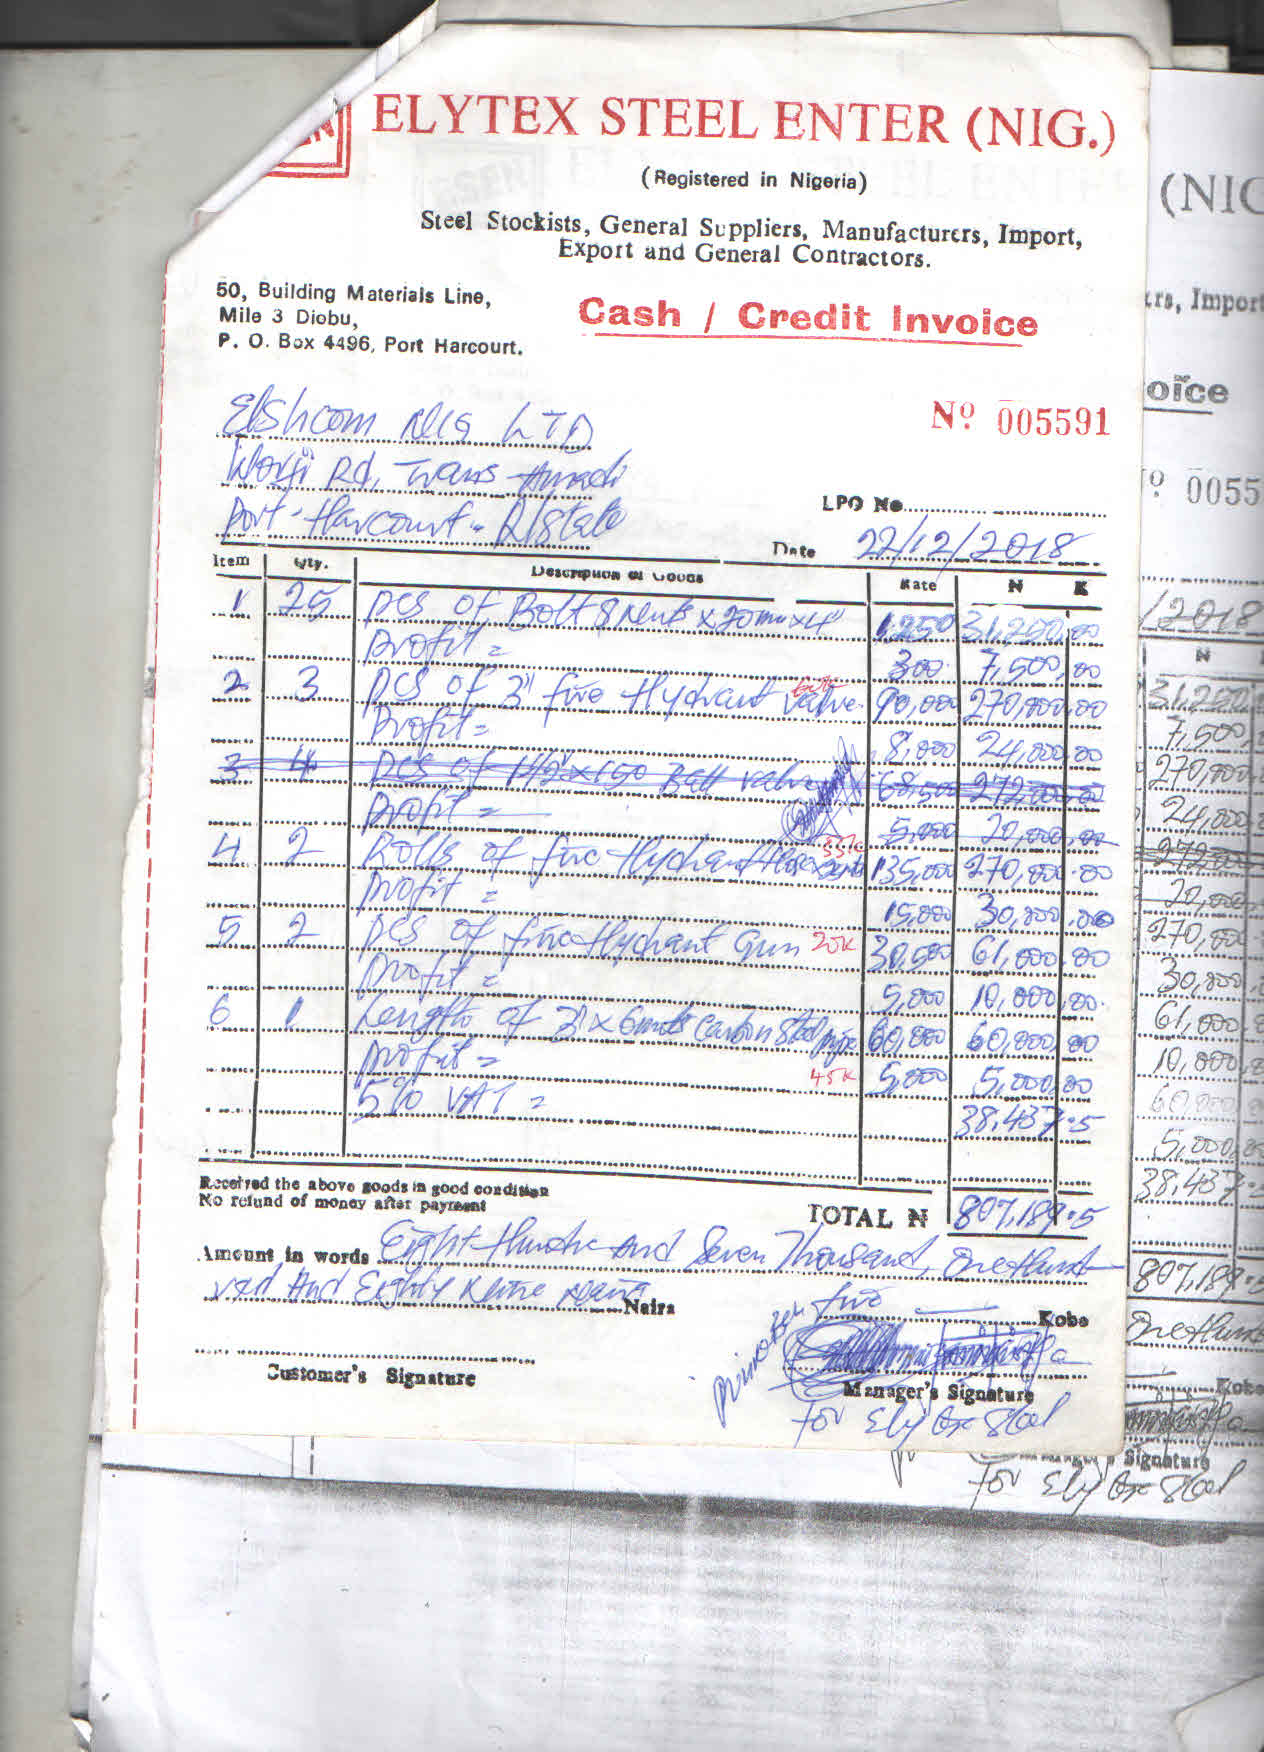 ELYTEX STEEL ENTER (NIG.)
(Registered in Nigeria)
Steel Stockists, General Suppliers, Manufacturers, Import,
Export and General Contractors.
50, Building Materials Line,
Mile 3 Diobu,
P. O. Box 4496, Port Harcourt.
Cash / Credit Invoice
Elshcom NIG LTD
Nº 005591
Woji Rd, Trans-Amadi
Port-Harcourt - R/State
LPO No
Date 22/12/2018
Item Qty. Description of Goods Rate N K
1 25 pcs of Bolt & Nuts x 20mm x 4" 1,250 31,250,00
profit = 300 7,500,00
2 3 pcs of 3" fire Hydrant valve 90,000 270,000,00
profit = 8,000 24,000,00
3 4 pcs of 1½" x 150 Ball valve 68,500 272,000,00
profit = 5,000 20,000,00
4 2 Rolls of fire Hydrant Hose 135,000 270,000.00
profit = 15,000 30,000,00
5 2 pcs of fire Hydrant Gun 25K 30,500 61,000,00
profit = 5,000 10,000,00
6 1 Length of 3" x 6mts carbon Steel pipe 60,000 60,000,00
profit = 45K 5,000 5,000,00
5% VAT = 38,437.5
Received the above goods in good condition
No refund of money after payment
TOTAL N 807,189.5
Amount in words Eight Hundre And Seven Thousand, One Hund
red And Eighty Nine Naira Naira
five Kobo
Customer's Signature
Manager's Signature
for Elytex Steel
(NIG
ers, Import
oice
º 0055
/2018
N
31,250
7,500
270,000
24,000
272,000
20,000
270,000
30,000
61,000
10,000
60,000
5,000
38,437
807,189.5
One Hund
Kobo
Signature
for Elytex Steel